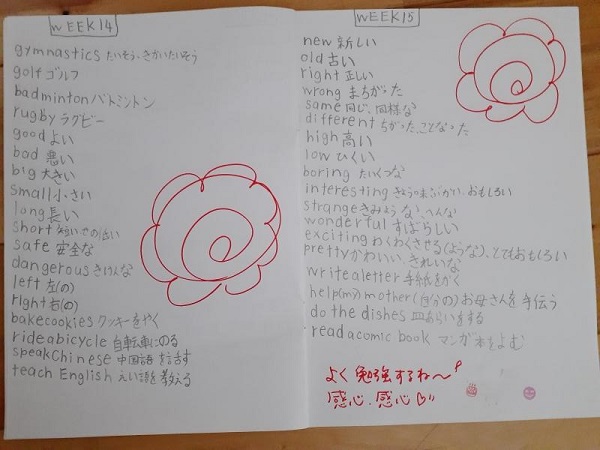 WEEK14
gymnastics たいそう、きかいたいそう
golf ゴルフ
badmintonバドミントン
rugby ラグビー
good よい
bad 悪い
big 大きい
small 小さい
long 長い
short 短い、せの低い
safe 安全な
dangerous きけんな
left 左(の)
right 右(の)
bakecookies クッキーをやく
rideabicycle 自転車にのる
speakChinese 中国語を話す
teach English えい語を教える
WEEK15
new 新しい
old 古い
right 正しい
wrong まちがった
same 同じ、同様な
different ちがった、ことなった
high 高い
low ひくい
boring たいくつな
interesting きょう味ぶかい、おもしろい
strange きみょうな、へんな
wonderful すばらしい
exciting わくわくさせる(ような)、とてもおもしろい
pretty かわいい、きれいな
writealetter 手紙をかく
help(my) mother (自分の)お母さんを手伝う
do the dishes 皿あらいをする
read acomic book マンガ本をよむ
よく勉強するね〜
感心、感心